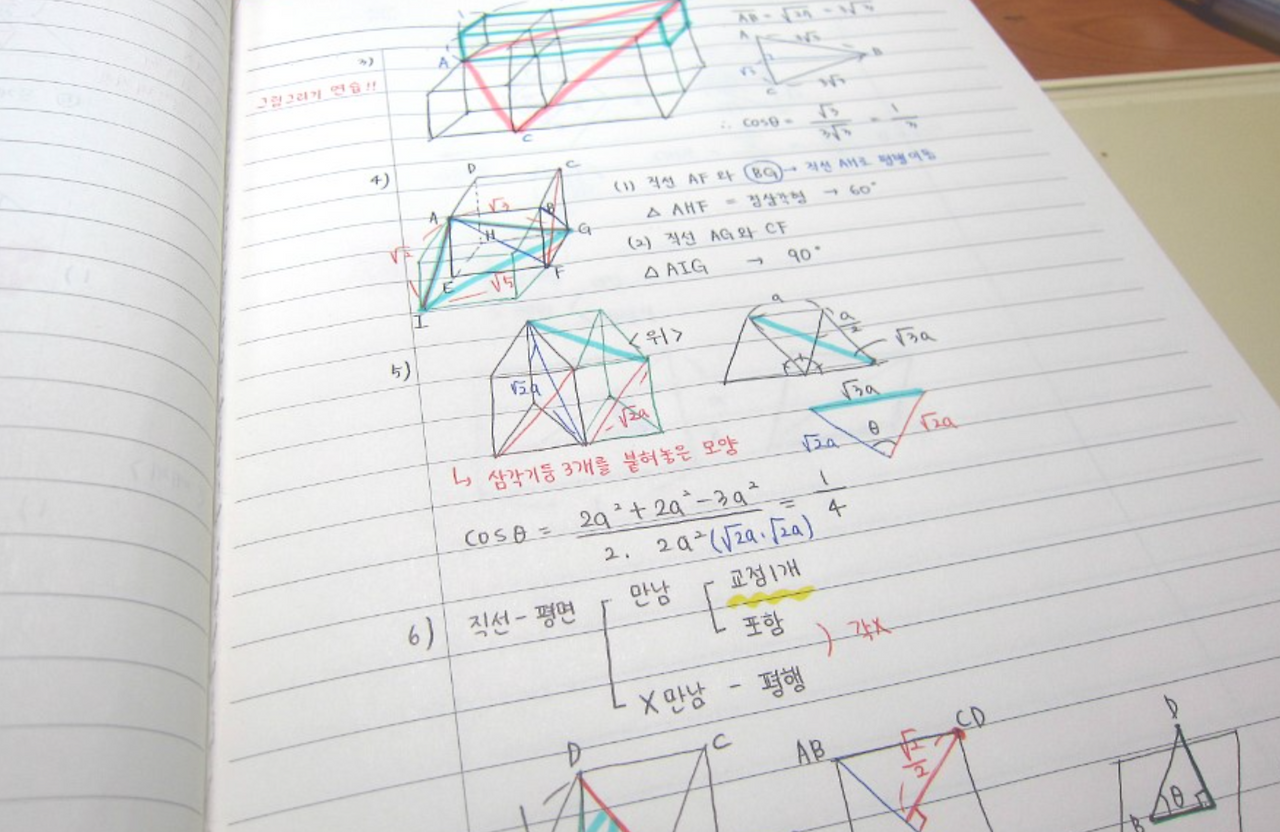 3)
그림그리기 연습!!
A
C
A
B
C
∴ cosθ = √3/3√3 = 1/3
4)
D
C
A
√3
B
H
G
√2
E
√5
F
I
(1) 직선 AF 와 BG → 직선 AH로 평행이동
△ AHF = 정삼각형 → 60°
(2) 직선 AG와 CF
△ AIG → 90°
5)
√2a
√2a
<위>
a
a/2
√3a
√3a
√2a
θ
√2a
↳ 삼각기둥 3개를 붙혀놓은 모양
cosθ = 2a²+2a²-3a² / 2. 2a²(√2a.√2a) = 1/4
6)
직선-평면
만남
교점1개
포함
) 각X
X만남 - 평행
D
C
AB
CD
√2/2
D
θ
B